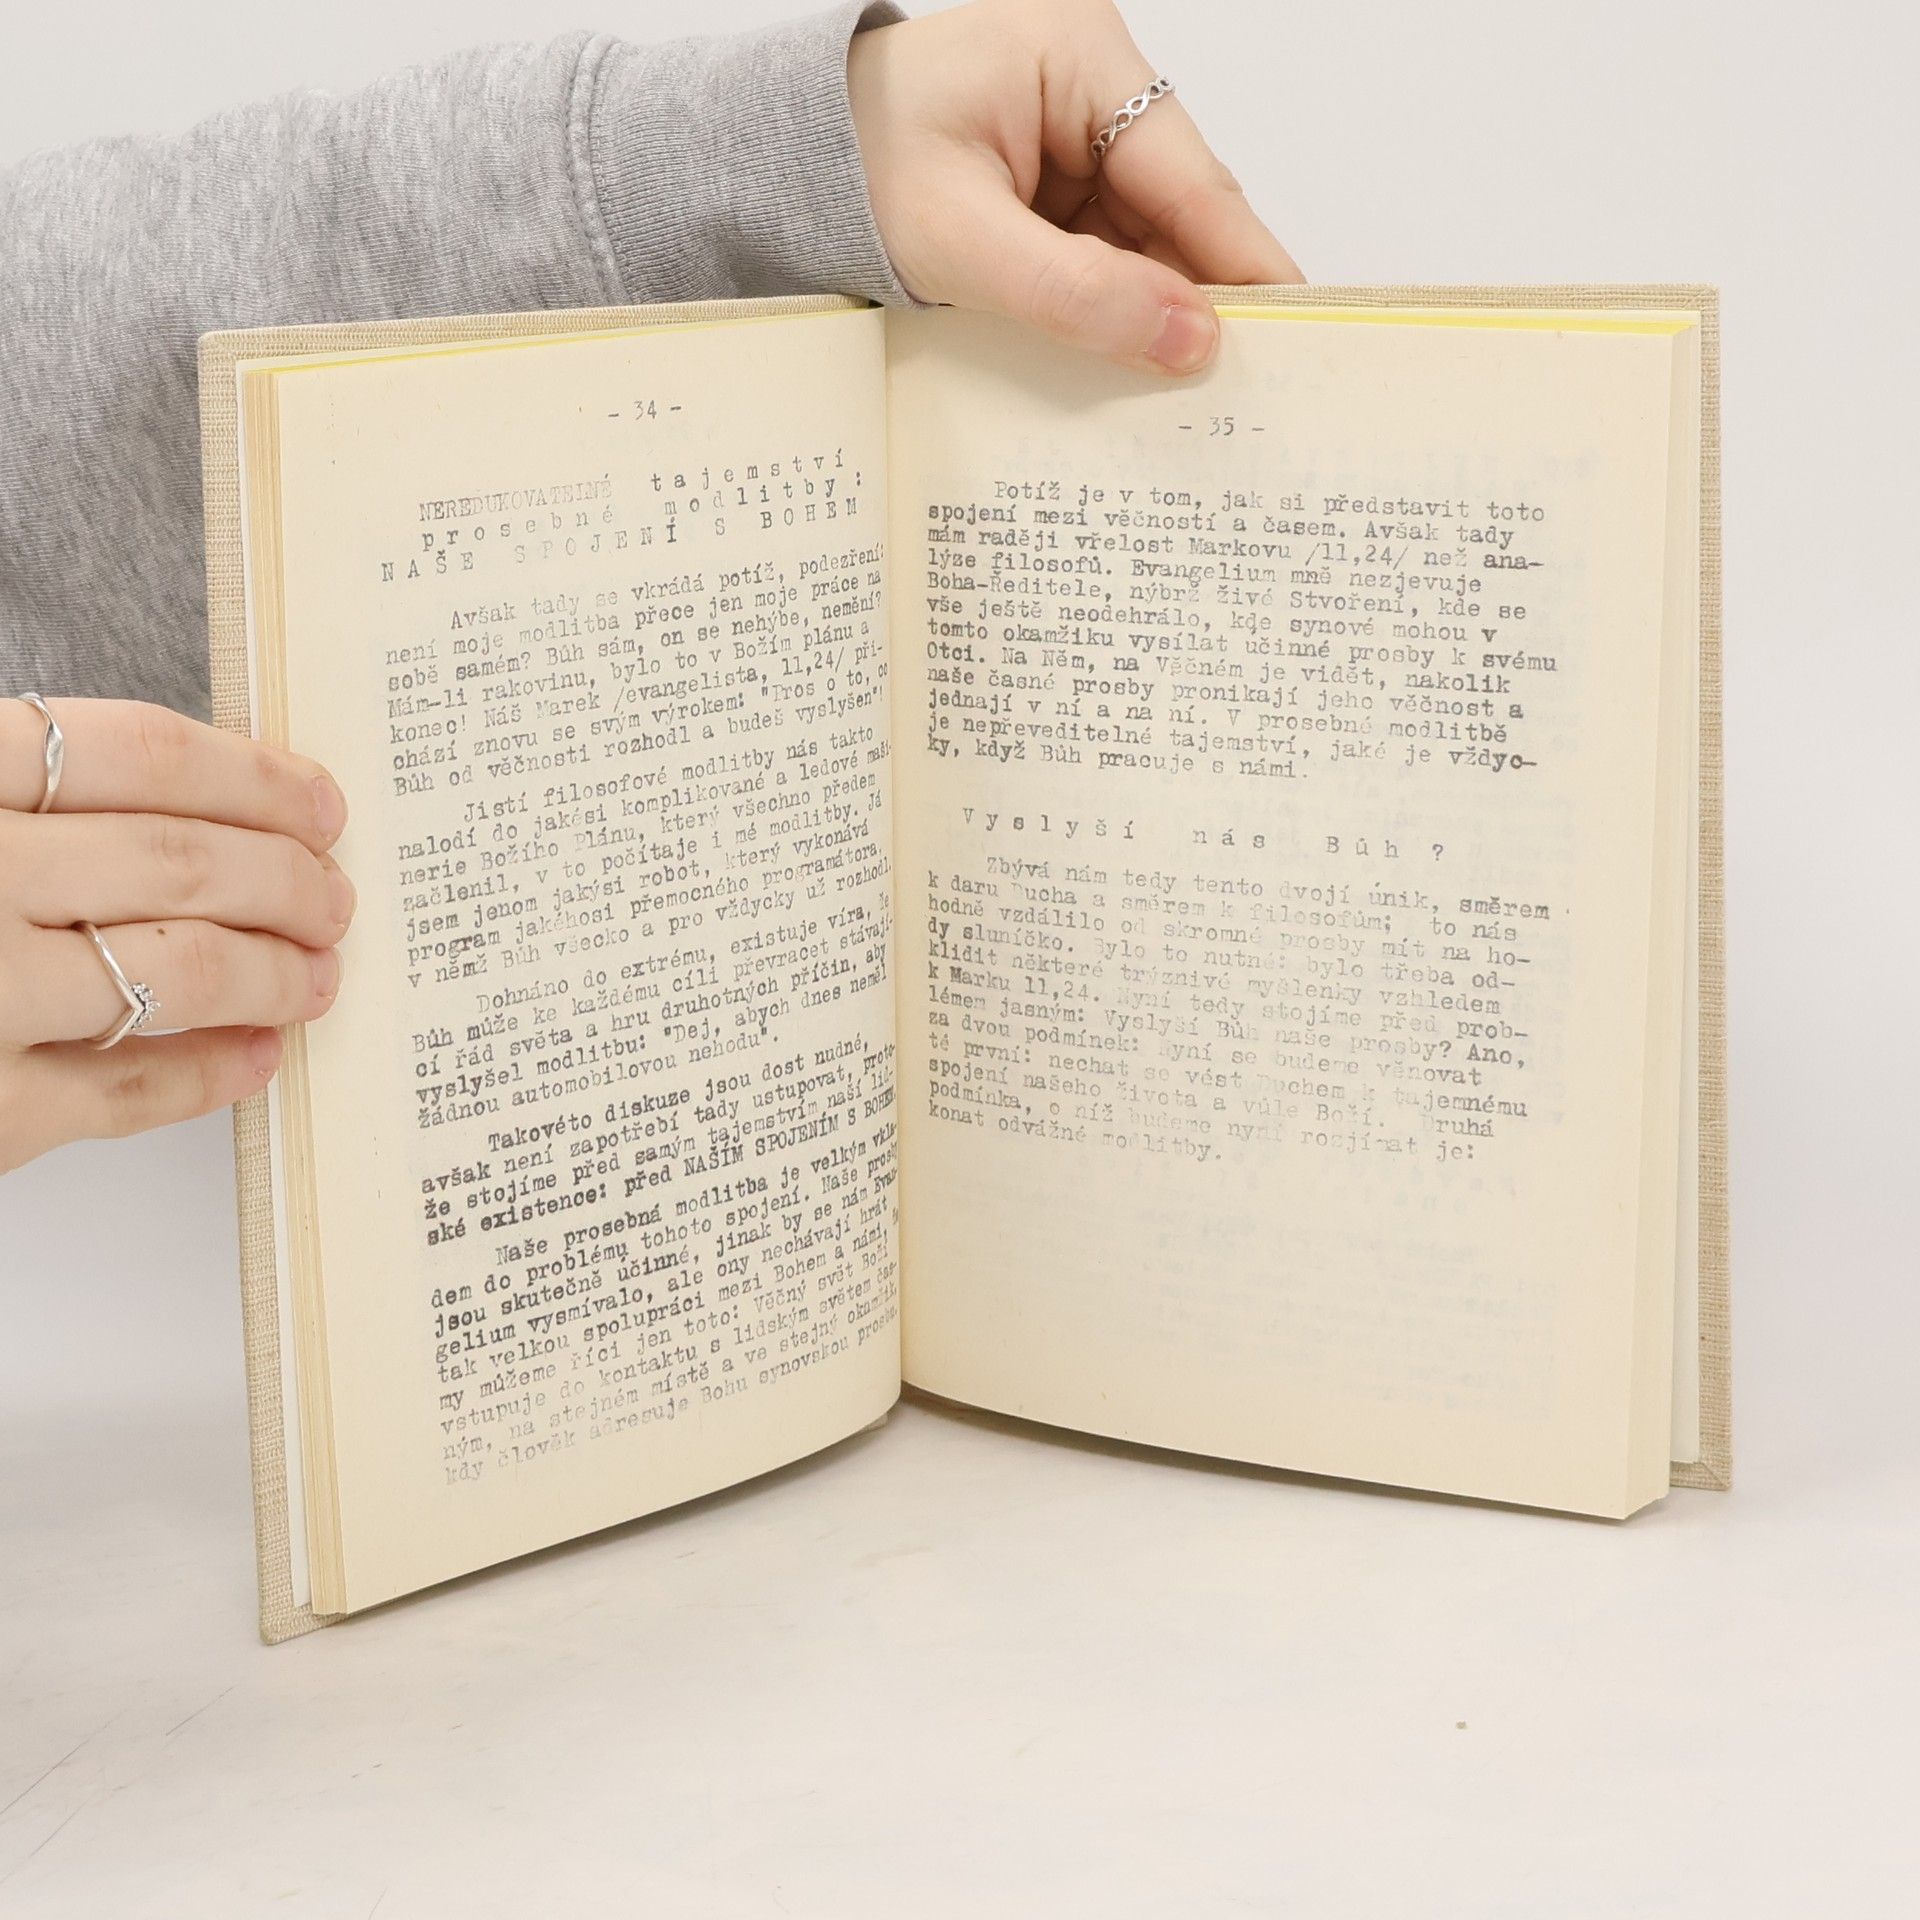 - 34 -
NEREDUKOVATELNÉ t a j e m s t v í
p r o s e b n é m o d l i t b y :
N A Š E S P O J E N Í S B O H E M
Avšak tady se vkrádá potíž, podezření:
není moje modlitba přece jen moje práce na
sobě samém? Bůh sám, on se nehýbe, nemění?
Mám-li rakovinu, bylo to v Božím plánu a
konec! Náš Marek /evangelista, 11,24/ při-
chází znovu se svým výrokem: "Pros o to, co
Bůh od věčnosti rozhodl a budeš vyslyšen"!
Jistí filosofové modlitby nás takto
nalodí do jakési komplikované a ledové maši-
nerie Božího Plánu, který všechno předem
začlenil, v to počítaje i mé modlitby. Já
jsem jenom jakýsi robot, který vykonává
program jakéhosi přemocného programátora,
v němž Bůh všecko a pro vždycky už rozhodl.
Dohnáno do extrému, existuje víra, že
Bůh může ke každému cíli převracet stávají-
cí řád světa a hru druhotných příčin, aby
vyslyšel modlitbu: "Dej, abych dnes neměl
žádnou automobilovou nehodu".
Takovéto diskuze jsou dost nudné,
avšak není zapotřebí tady ustupovat, proto-
že stojíme před samým tajemstvím naší lid-
ské existence: před NAŠÍM SPOJENÍM S BOHEM.
Naše prosebná modlitba je velkým vkla-
dem do problému tohoto spojení. Naše prosby
jsou skutečně účinné, jinak by se nám Evan-
gelium vysmívalo, ale ony nechávají hrát
tak velkou spolupráci mezi Bohem a námi, že
my můžeme říci jen toto: Věčný svět Boží
vstupuje do kontaktu s lidským světem čas-
ným, na stejném místě a ve stejný okamžik,
kdy člověk adresuje Bohu synovskou prosbu.
- 35 -
Potíž je v tom, jak si představit toto
spojení mezi věčností a časem. Avšak tady
mám raději vřelost Markovu /11,24/ než ana-
lýze filosofů. Evangelium mně nezjevuje
Boha-Ředitele, nýbrž živé Stvoření, kde se
vše ještě neodehrálo, kde synové mohou v
tomto okamžiku vysílat účinné prosby k svému
Otci. Na Něm, na Věčném je vidět, nakolik
naše časné prosby pronikají jeho věčnost a
jednají v ní a na ní. V prosebné modlitbě
je nepřeveditelné tajemství, jaké je vždyc-
ky, když Bůh pracuje s námi.
V y s l y š í n á s B ů h ?
Zbývá nám tedy tento dvojí únik, směrem
k daru Ducha a směrem k filosofům; to nás
hodně vzdálilo od skromné prosby mít na ho-
dy sluníčko. Bylo to nutné: bylo třeba od-
klidit některé trýznivé myšlenky vzhledem
k Marku 11,24. Nyní tedy stojíme před prob-
lémem jasným: Vyslyší Bůh naše prosby? Ano,
za dvou podmínek: Nyní se budeme věnovat
té první: nechat se vést Duchem k tajemnému
spojení našeho života a vůle Boží. Druhá
podmínka, o níž budeme nyní rozjímat je:
konat odvážné modlitby.